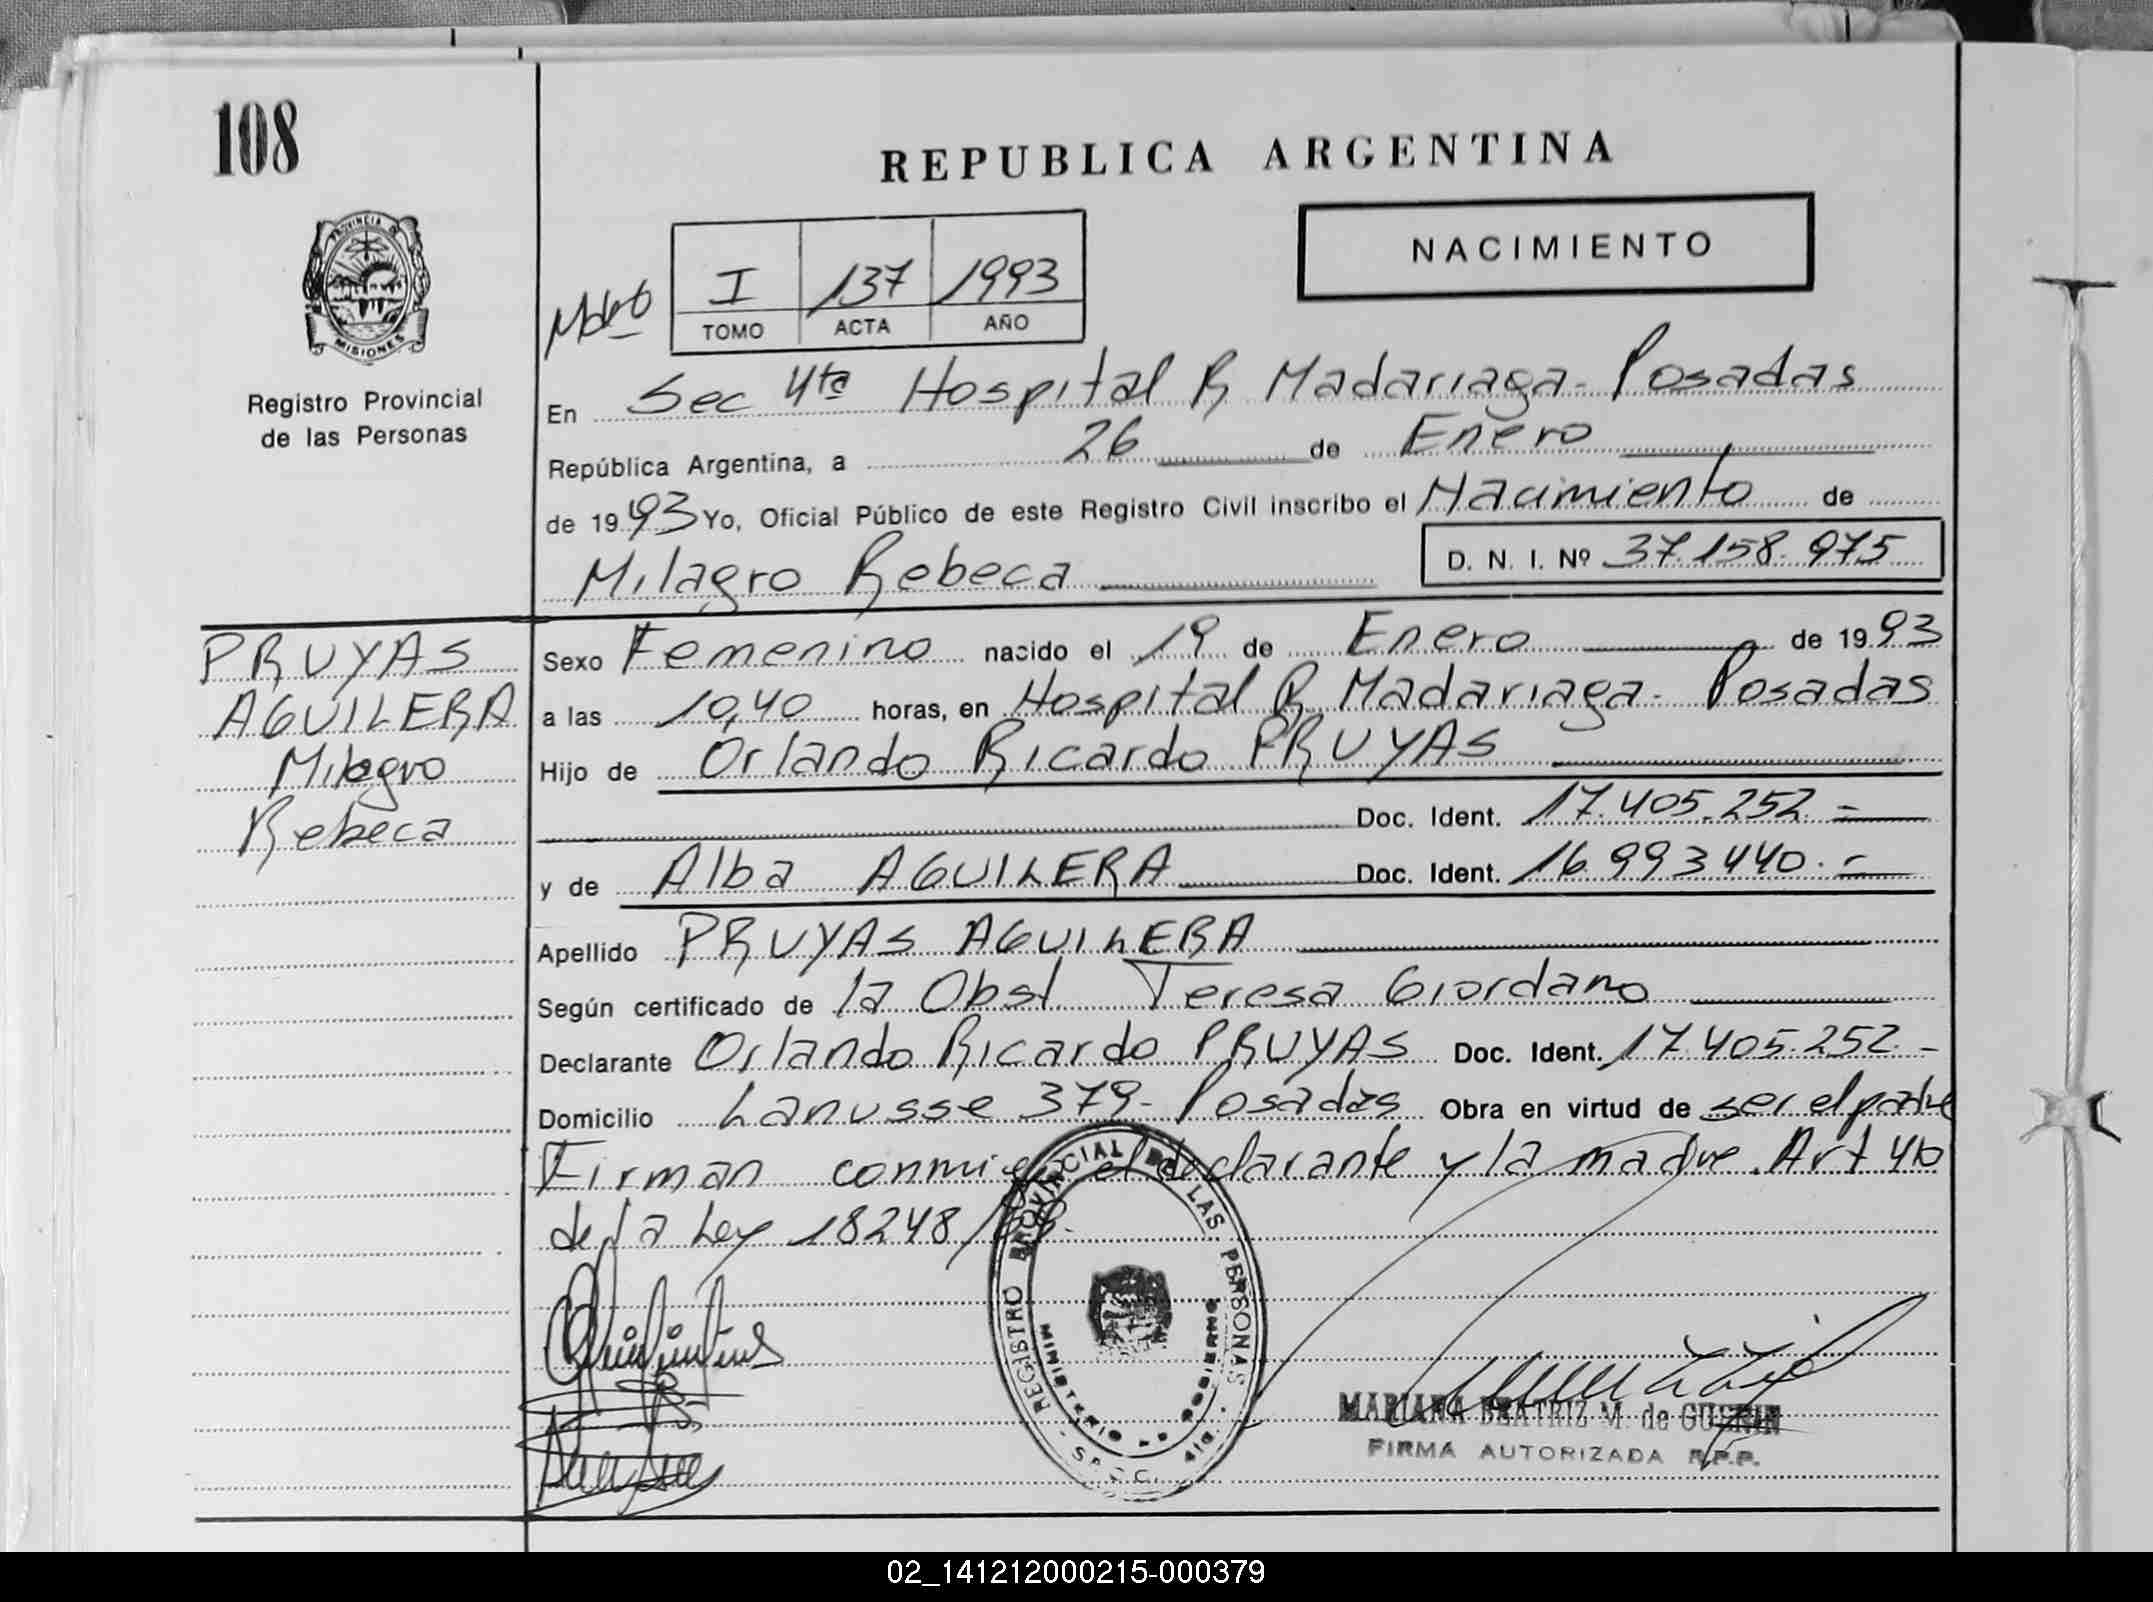 108
REPUBLICA ARGENTINA
NACIMIENTO
PROVINCIA DE
MISIONES
Registro Provincial
de las Personas
I 137 1993
TOMO ACTA AÑO
En Sec 4ta Hospital R Madariaga - Posadas
República Argentina, a 26 de Enero
de 1993 Yo, Oficial Público de este Registro Civil inscribo el Nacimiento de
Milagro Rebeca D. N. I. Nº 37.158.975
PRUYAS
AGUILERA
Milagro
Rebeca
Sexo Femenino nacido el 19 de Enero de 1993
a las 10,40 horas, en Hospital R Madariaga - Posadas
Hijo de Orlando Ricardo PRUYAS
Doc. Ident. 17.405.252.=
y de Alba AGUILERA Doc. Ident. 16.993440.=
Apellido PRUYAS AGUILERA
Según certificado de la Obst Teresa Giordano
Declarante Orlando Ricardo PRUYAS Doc. Ident. 17.405.252.-
Domicilio Lanusse 379- Posadas Obra en virtud de ser el padre
Firman conmigo el declarante y la madre. Art 4to
de la Ley 18248/
REGISTRO PROVINCIAL DE LAS PERSONAS
MINISTERIO DE GOBIERNO
MARIANA BEATRIZ M. de
FIRMA AUTORIZADA R.P.P.
02_141212000215-000379